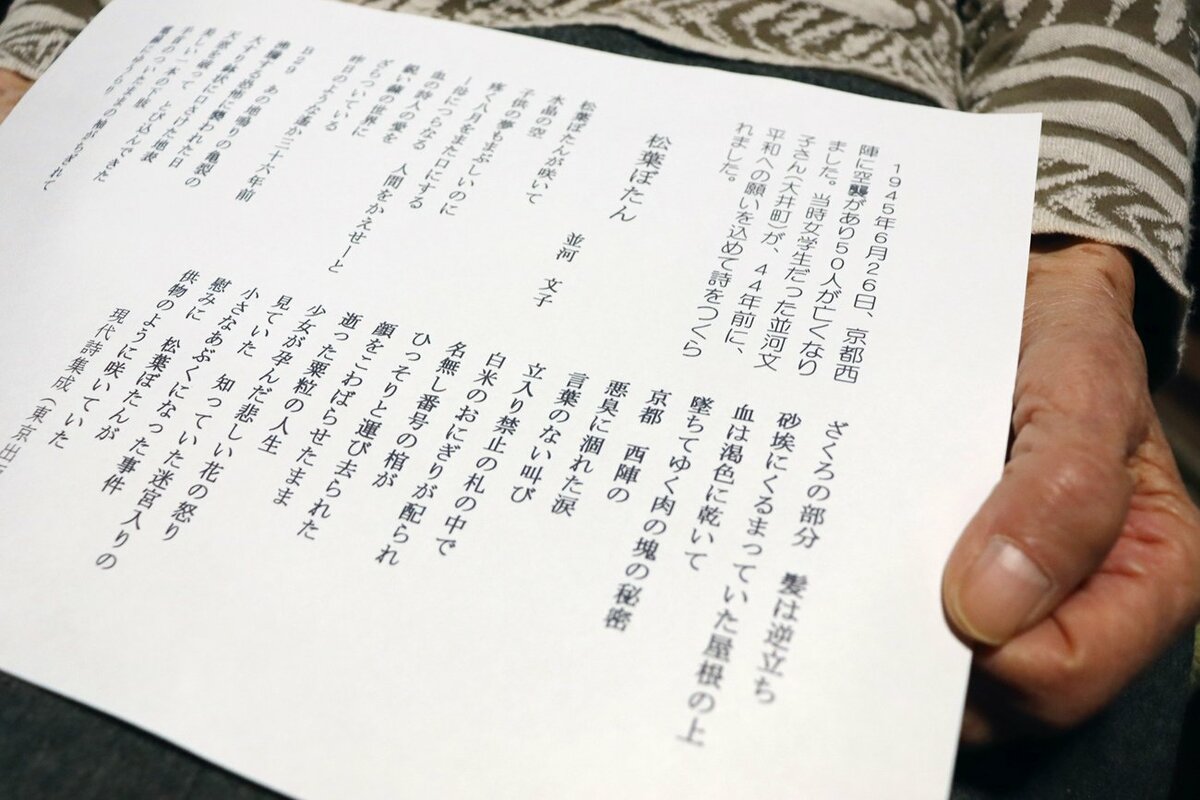 1945年6月26日、京都西
陣に空襲があり50人が亡くなり
ました。当時女学生だった並河文
子さん(大井町)が、44年前に、
平和への願いを込めて詩をつくら
れました。
松葉ぼたん
並河 文子
松葉ぼたんが咲いて
水晶の空
子供の夢もまぶしいのに
疼く八月をまた口にする
―母につらなる 人間をかえせーと
血の詩人の愛を
鋭い歯の世界に
ざらついている
昨日のような遙か三十六年前
B29
あの地鳴りの亀裂の
恐怖に襲われた日
天窓を破って口さけた地表
美しい一本の下肢 とび込んできた
ざくろの部分 髪は逆立ち
砂埃にくるまっていた屋根の上
血は渇色に乾いて
墜ちてゆく肉の塊の秘密
京都 西陣の
悪臭に涸れた涙
言葉のない叫び
立入り禁止の札の中で
白米のおにぎりが配られ
名無し番号の棺が
ひっそりと運び去られた
顔をこわばらせたまま
逝った粟粒の人生
少女が孕んだ悲しい花の怒り
見ていた 知っていた迷宮入りの
小さなあぶくになった事件
慰みに 松葉ぼたんが
供物のように咲いていた
現代詩集成(東京出